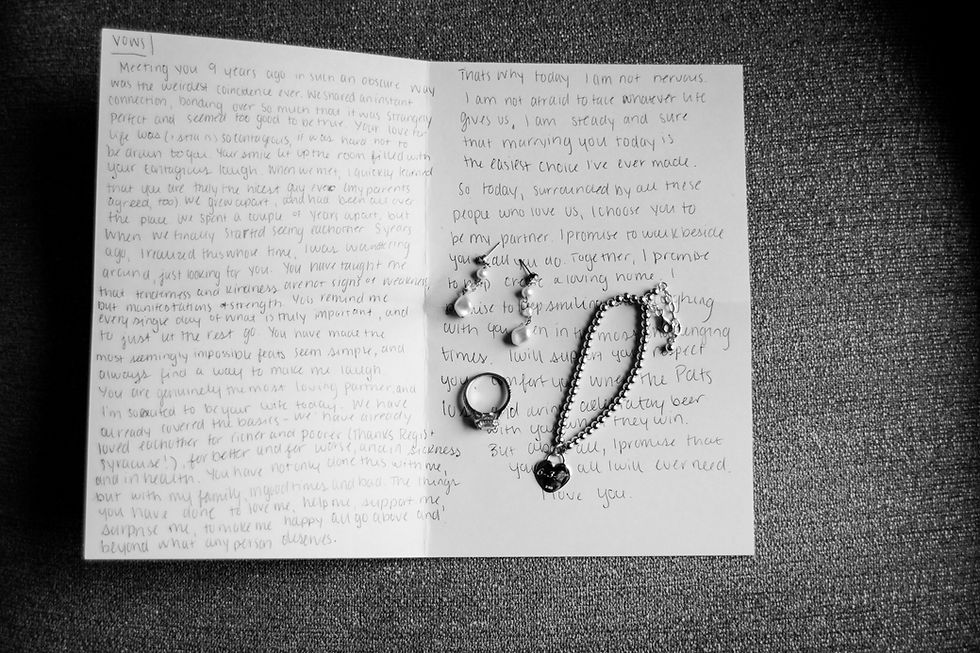 VOWS
Meeting you 9 years ago in such an obscure way
was the weirdest coincidence ever. We shared an instant
connection, bonding over so much that it was strangely
perfect and seemed too good to be true. Your love for
life was (& still is) so contagious, it was hard not to
be drawn to you. Your smile lit up the room filled with
your contagious laugh. When we met, I quickly learned
that you are truly the nicest guy ever (my parents
agreed, too). We grew apart, and had been all over
the place. We spent a couple of years apart, but
when we finally started seeing eachother 5 years
ago, I realized this whole time, I was wandering
around, just looking for you. You have taught me
that tenderness and kindness are not signs of weakness,
but manifestations of strength. You remind me
every single day of what is truly important, and
to just let the rest go. You have made the
most seemingly impossible feats seem simple, and
always find a way to make me laugh.
You are genuinely the most loving partner, and
I'm so excited to be your wife today. We have
already covered the basics - we have already
loved eachother for richer and poorer (Thanks Regis +
Syracuse!), for better and for worse, and in sickness
and in health. You have not only done this with me,
but with my family, in good times and bad. The things
you have done to love me, help me, support me,
surprise me, to make me happy all go above and
beyond what any person deserves.
Thats why today I am not nervous.
I am not afraid to take whatever life
gives us, I am steady and sure
that marrying you today is
the easiest choice I've ever made.
So today, surrounded by all these
people who love us, I choose you to
be my partner. I promise to walk beside
you all you go. Together, I promise
to create a loving home. I
to keep smiling
with you in most
times. I will support you, respect
you, comfort you when the Pats
and celebratory beer
with you when they win.
But all, I promise that
you all I will ever need.
I love you.